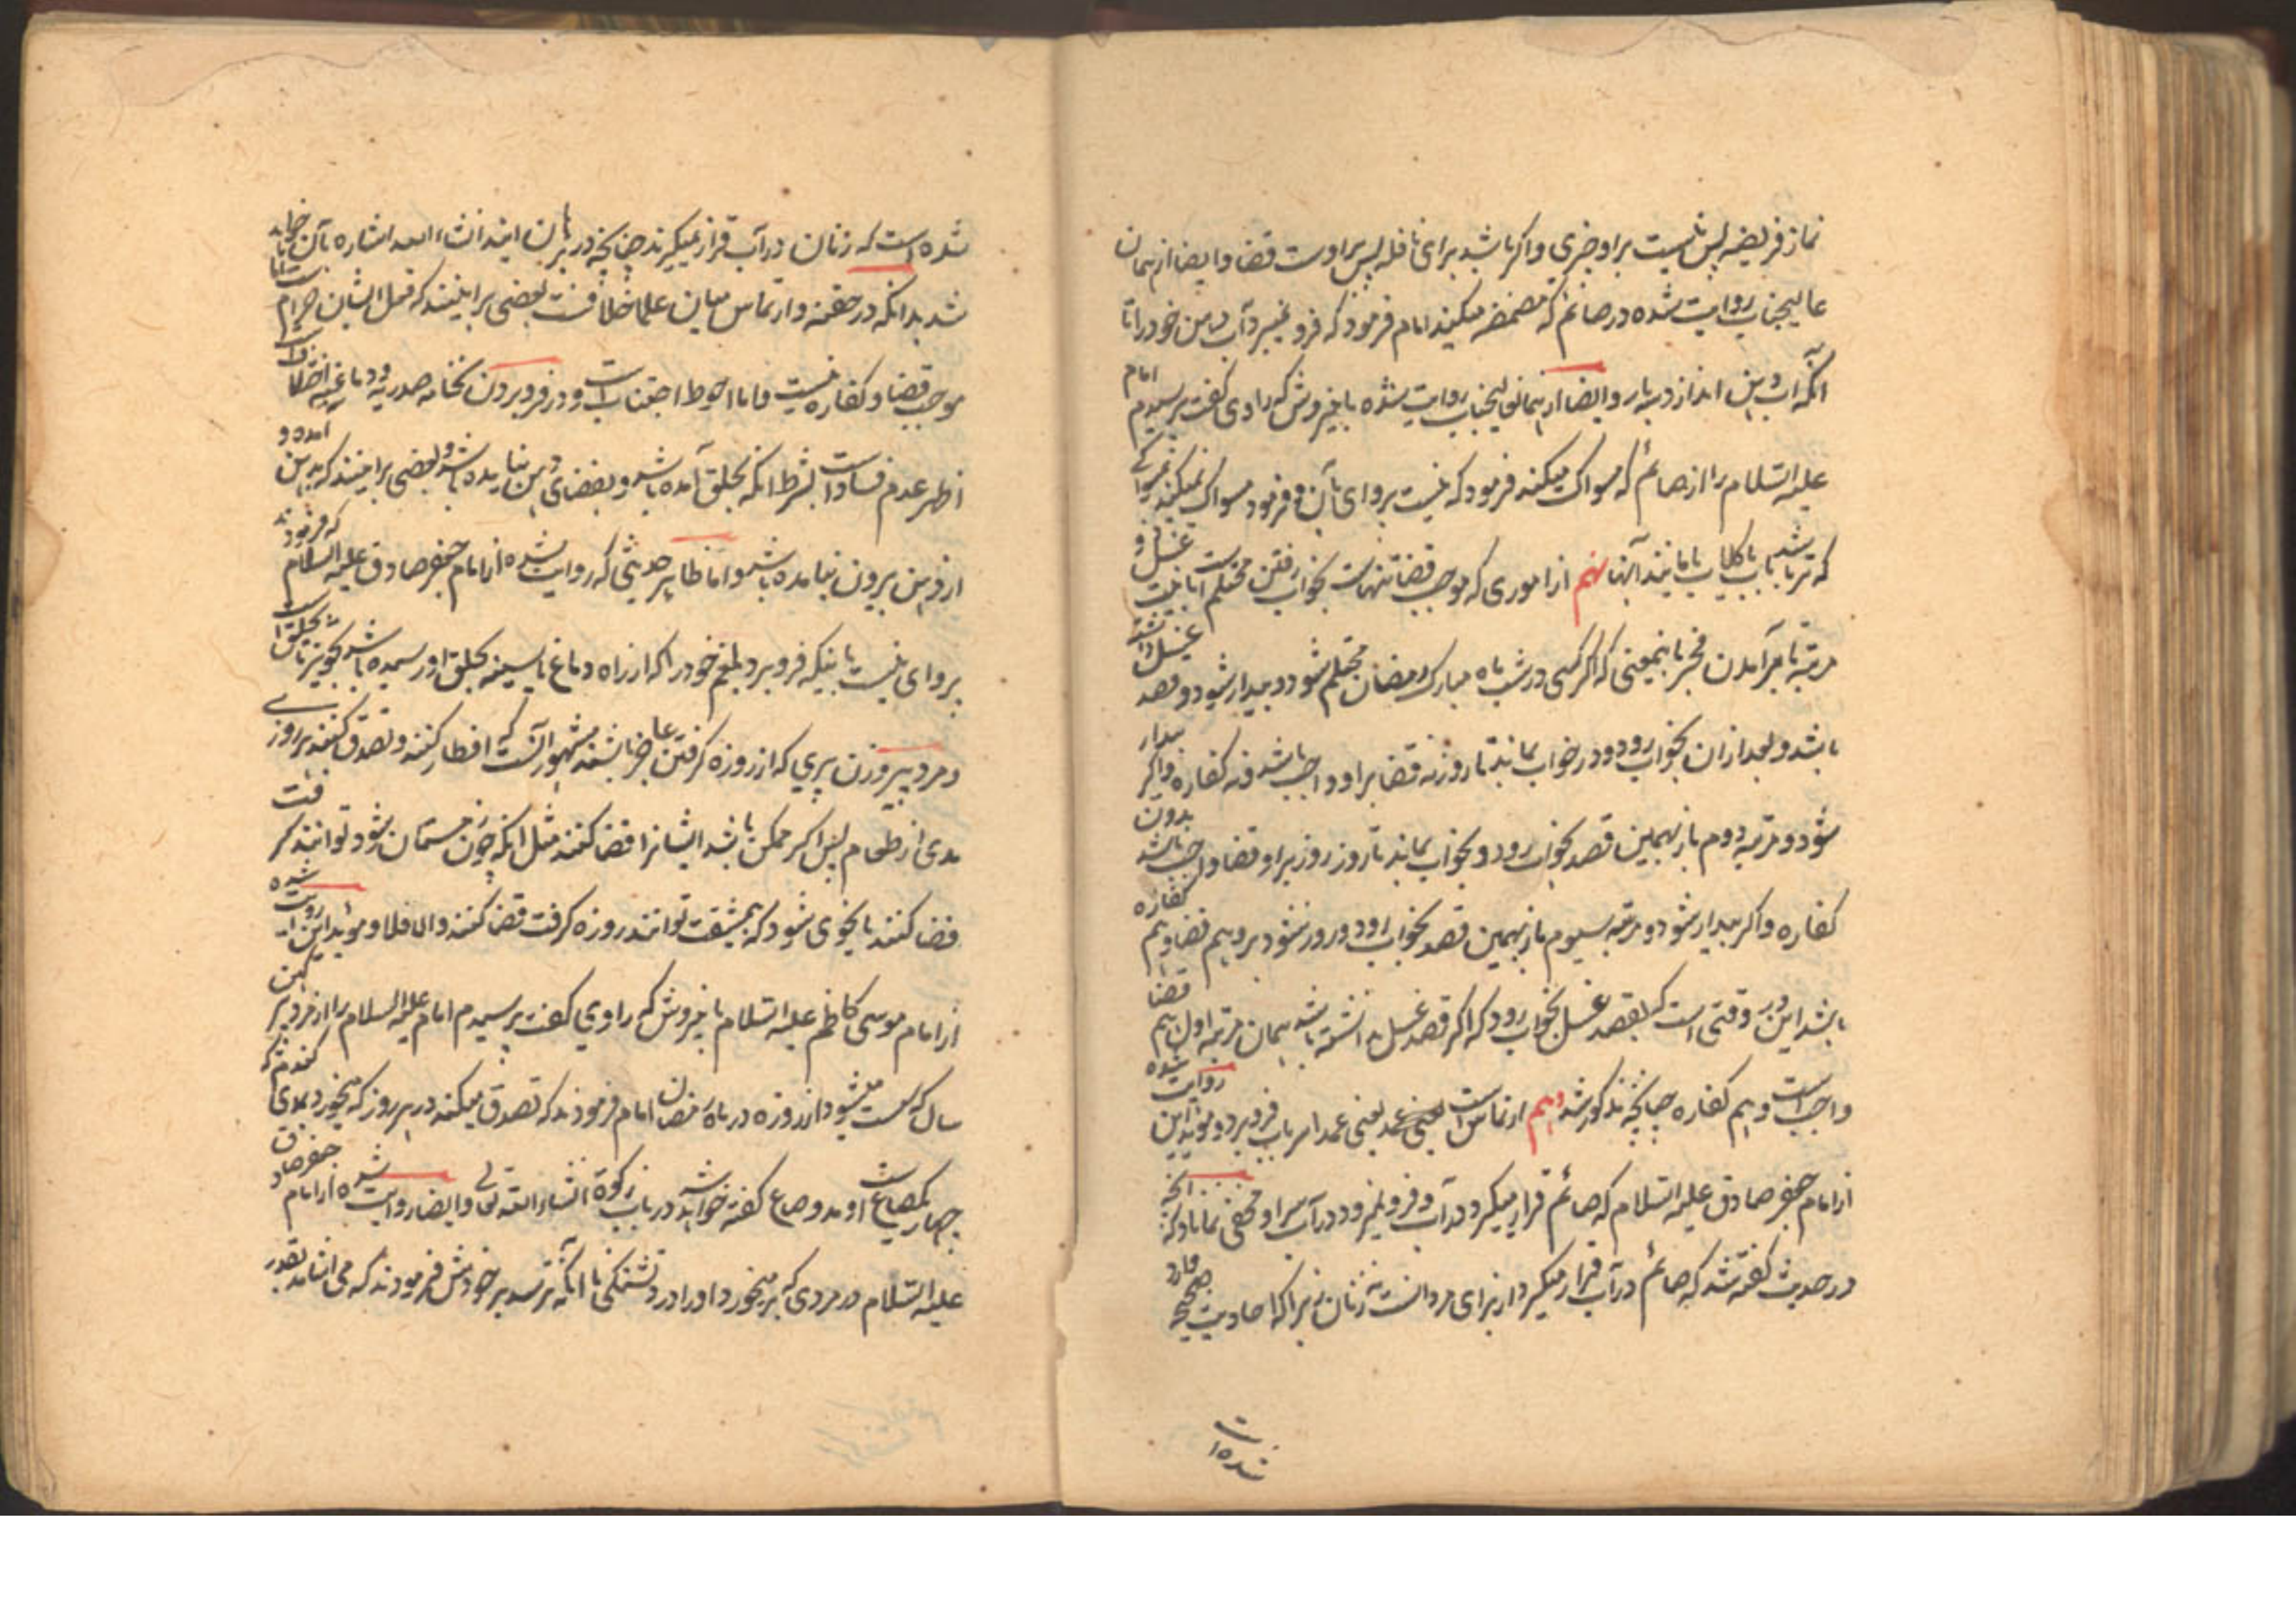 نماز فریضه پس نیست بر او چیزی و اکر باشد برای نافله پس بر اوست قضا و ایضا از همان
عالیجناب روایت شده در صائم که مضمضه میکند امام فرمود که فرو نمیبرد آب دهن خود را تا
آنکه آب دهن اندازد سه بار و ایضا از همان عالیجناب روایت شده باینروش که راوی کفت پرسیدم امام
علیه السلام را از صائم که مسواک میکند فرمود که نیست پروای بآن و فرمود مسواک نمیکند بچوبی
که تر باشد بآب یا کلاب یا مانند آنها نهم از اموری که موجب قضا تنهاست بخواب رفتن محتلم است با نیت غسل و
مرتبه تا بر آمدن فجر باینمعنی که اکر کسی در شب ماه مبارک رمضان محتلم شود و بیدار شود و قصد غسل داشته
باشد و بعد از ان بخواب رود و در خواب بماند تا روز نه قضا بر او واجب باشد و نه کفاره و اکر بیدار
شود و مرتبه دوم باز بهمین قصد بخواب رود و بخواب بماند تا روز روز بر او قضا واجب باشد بدون
کفاره و اکر بیدار شود و مرتبه سیوم باز بهمین قصد بخواب رود و روز شود بر او هم قضا و هم کفاره
باشد این در وقتی است که بقصد غسل بخواب رود که اکر قصد غسل نداشته باشد بهمان مرتبه اول هم قضا
واجب است و هم کفاره چنانچه مذکور شد دهم ارتماس است یعنی عمد یعنی عمدا سر بآب فرو برد و مؤید این روایت شده
از امام جعفر صادق علیه السلام که صائم قرار میکیرد در آب و فرو نمیرود در آب سر او مخفی نماناد که آنچه
در حدیث کفته شد که صائم در آب قرار میکیرد از برای مردانست نه زنان زیرا که احادیث صحیحه وارد
شده است
شده است که زنان در آب قرار نمیکیرند چنانچه در بر بآن انشاء الله اشاره بآن خواهد
شد بدانکه در حقنه و ارتماس میان علما خلافست بعضی بر اینند که فعل ایشان حرام است اما
موجب قضا و کفاره نیست و اما احوط اجتناب است و در فرو بردن نخامه صدریه و دماغیه اختلاف است
اظهر عدم فساد است بشرط آنکه بحلق آمده باشد و بفضای دهن نیامده باشد و بعضی بر اینند که بدهن آمده و
از دهن بیرون نیامده باشد و اما ظاهر حدیثی که روایت شده از امام جعفر صادق علیه السلام که فرمودند
پروای نیست باینکه فرو برد بلغم خود را که از راه دماغ یا سینه بحلق او رسیده باشد تجویز تا بحلق است
و مرد پیر و زن پیری که از روزه کرفتن عاجز باشند مشهور آنست که افطار کنند و تصدق کنند هر روزی
مدی از طعام پس اکر ممکن باشد ایشانرا قضا کنند مثل آنکه چون زمستان شود توانند کرفت
قضا کنند یا بنحوی شود که بمشقت توانند روزه کرفت قضا کنند والا فلا و مؤید این روایت شده است
از امام موسی کاظم علیه السلام باینروش که راوی کفت پرسیدم امام علیه السلام را از مرد پیر کهن
سال که سست میشود از روزه در ماه رمضان امام فرمودند که تصدق میکند در هر روز که میخورد بمدی کندم که
چهار یکصاع است و مد و صاع کفته خواهد شد در باب زکوة انشاء الله تعالی و ایضا روایت شده از امام جعفر صادق
علیه السلام در مردی که میخورد او را در تشنکی تا آنکه بترسد بر خودش فرمودند که می آشامد بقدر